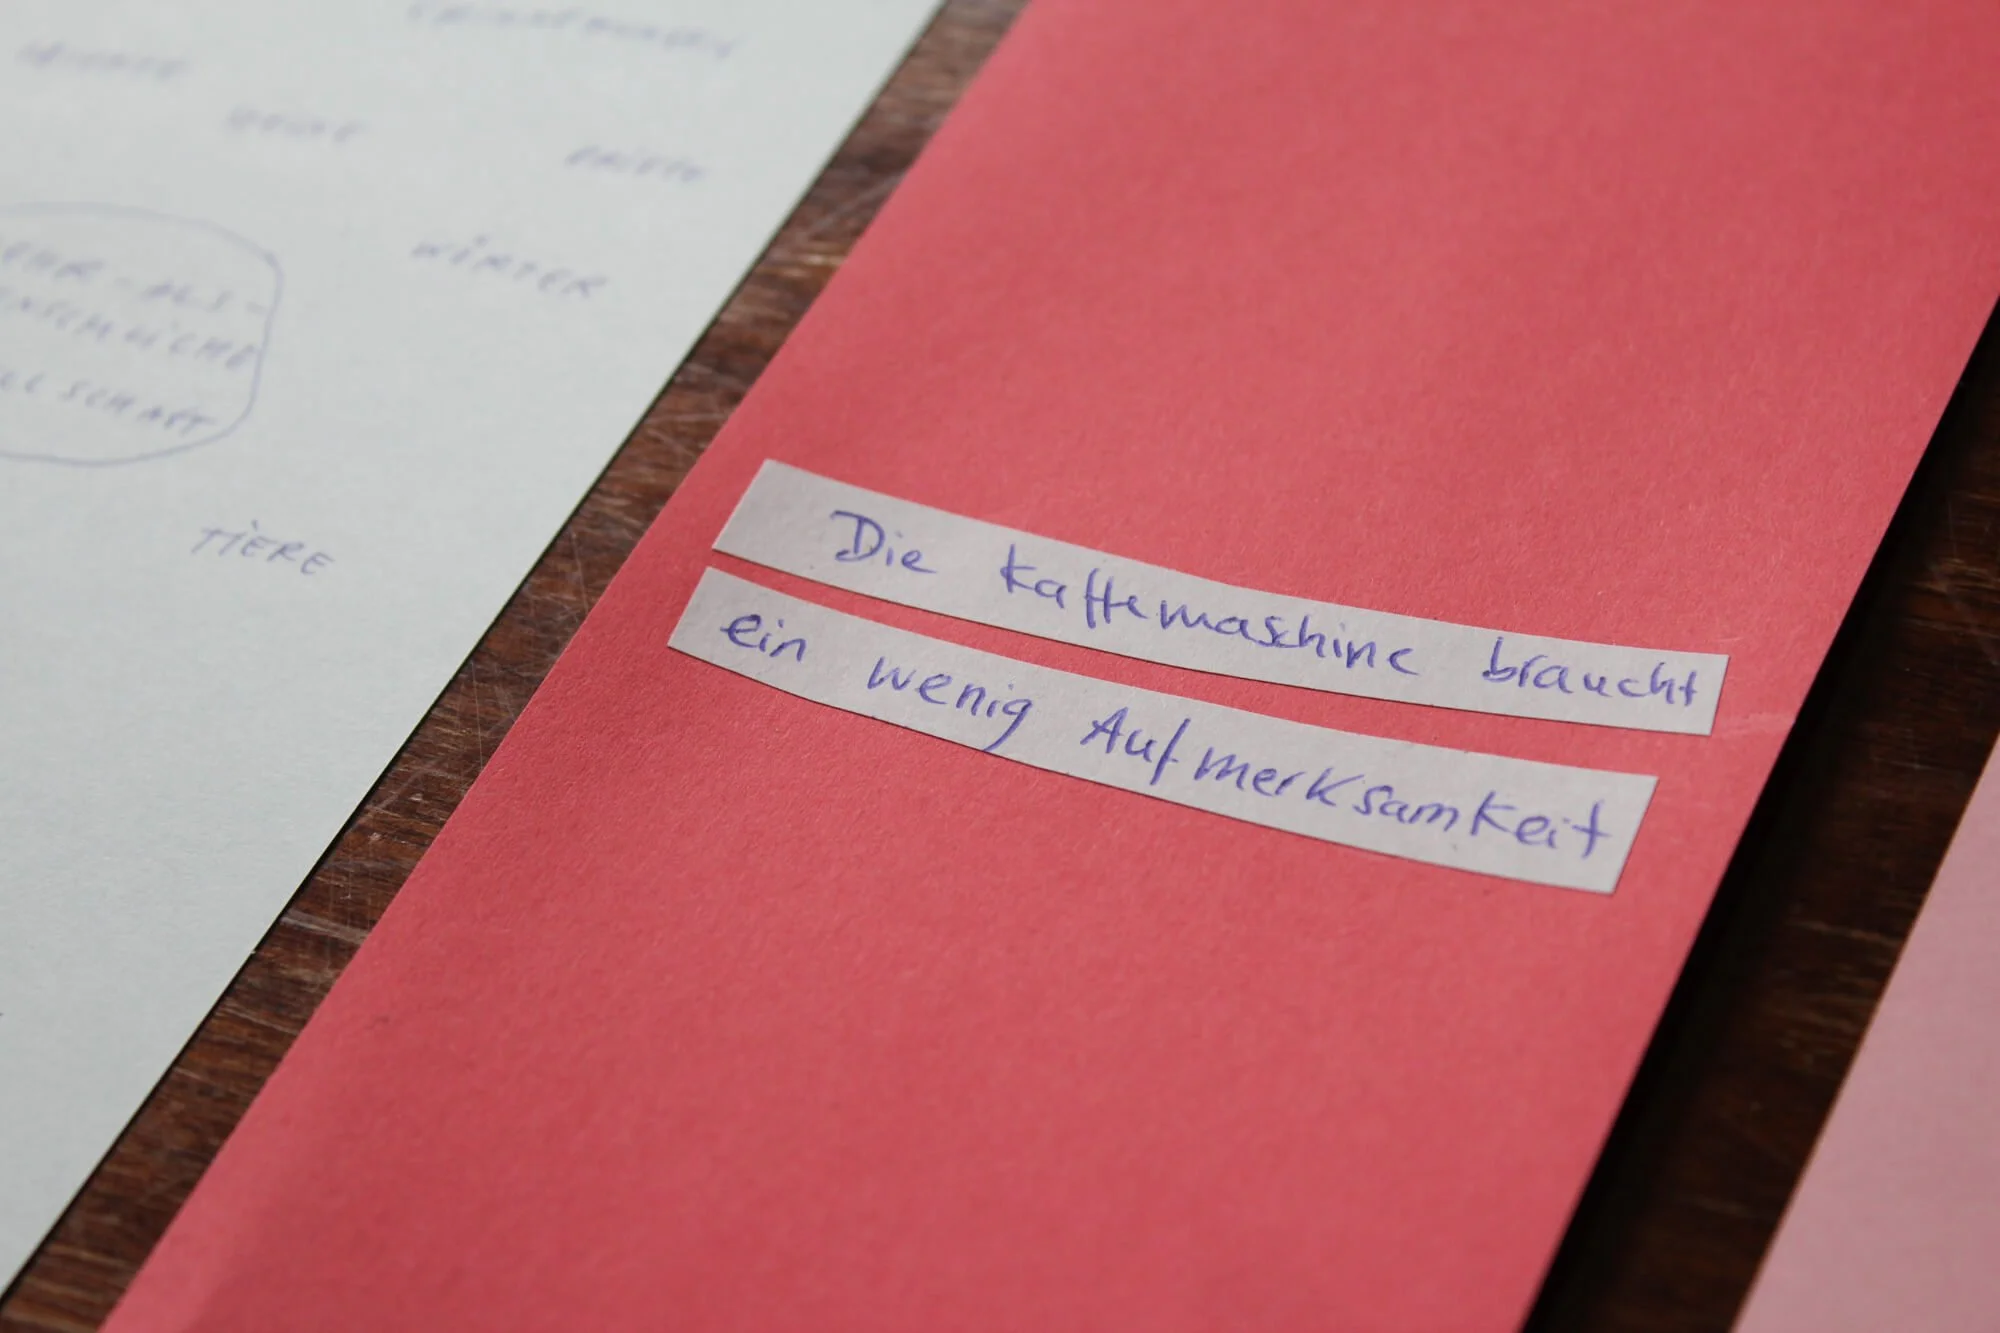 WÖRTER
EHR-ALS-
ENSCHLICHE
LLSCHAFT
TIERE
Die Kaffemaschine braucht
ein wenig Aufmerksamkeit